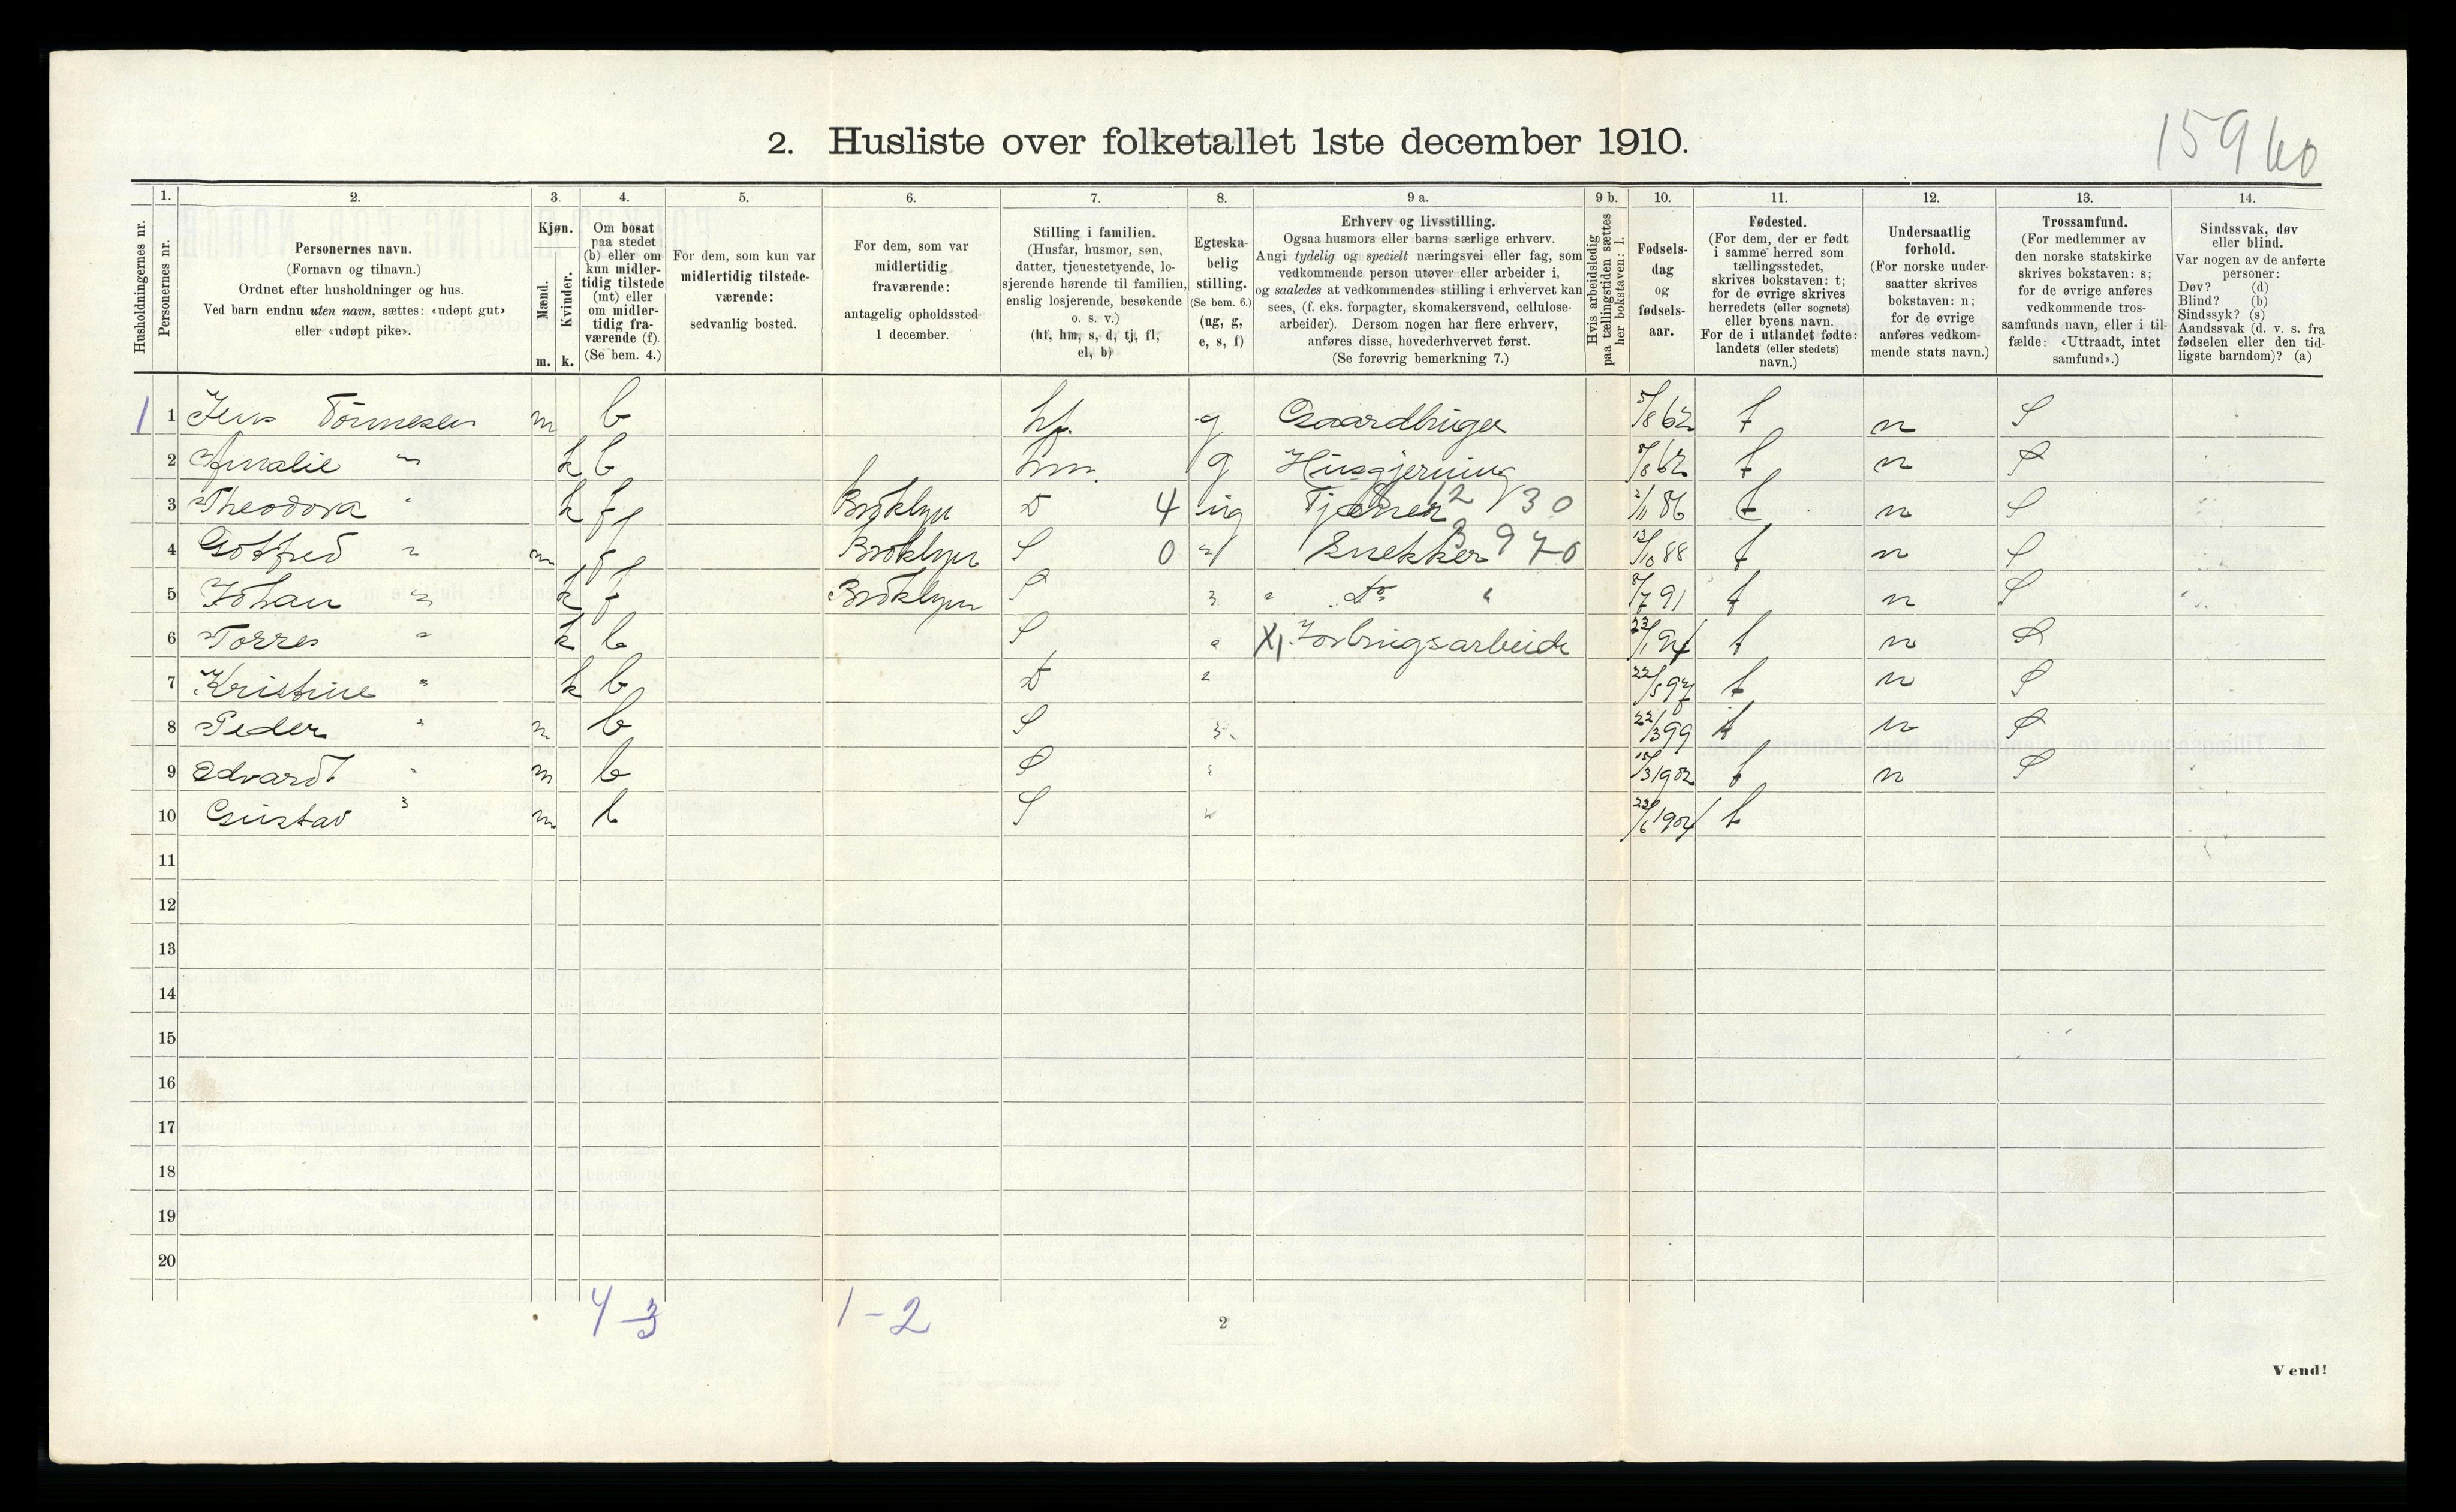 15960
2. Husliste over folketallet 1ste december 1910.
1. 2. 3. 4. 5. 6. 7. 8. 9 a. 9 b. 10. 11. 12. 13. 14.
Husholdningernes nr.
Personernes nr.
Personernes navn.
(Fornavn og tilnavn.)
Ordnet efter husholdninger og hus.
Ved barn endnu uten navn, sættes: «udøpt gut»
eller «udøpt pike».
Kjøn.
Mænd.
Kvinder.
m. k.
Om bosat
paa stedet
(b) eller om
kun midler-
tidig tilstede
(mt) eller
om midler-
tidig fra-
værende (f).
(Se bem. 4.)
For dem, som kun var
midlertidig tilstede-
værende:
sedvanlig bosted.
For dem, som var
midlertidig
fraværende:
antagelig opholdssted
1 december.
Stilling i familien.
(Husfar, husmor, søn,
datter, tjenestetyende, lo-
sjerende hørende til familien,
enslig losjerende, besøkende
o. s. v.)
(hf, hm, s, d, tj, fl,
el, b)
Egteska-
belig
stilling.
(Se bem. 6.)
(ug, g,
e, s, f)
Erhverv og livsstilling.
Ogsaa husmors eller barns særlige erhverv.
Angi tydelig og specielt næringsvei eller fag, som
vedkommende person utøver eller arbeider i,
og saaledes at vedkommendes stilling i erhvervet kan
sees, (f. eks. forpagter, skomakersvend, cellulose-
arbeider). Dersom nogen har flere erhverv,
anføres disse, hovederhvervet først.
(Se forøvrig bemerkning 7.)
Hvis arbeidsledig
paa tællingstiden sættes
her bokstaven: l.
Fødsels-
dag
og
fødsels-
aar.
Fødested.
(For dem, der er født
i samme herred som
tællingsstedet,
skrives bokstaven: t;
for de øvrige skrives
herredets (eller sognets)
eller byens navn.
For de i utlandet fødte:
landets (eller stedets)
navn.)
Undersaatlig
forhold.
(For norske under-
saatter skrives
bokstaven: n;
for de øvrige
anføres vedkom-
mende stats navn.)
Trossamfund.
(For medlemmer av
den norske statskirke
skrives bokstaven: s;
for de øvrige anføres
vedkommende tros-
samfunds navn, eller i til-
fælde: «Uttraadt, intet
samfund».)
Sindssvak, døv
eller blind.
Var nogen av de anførte
personer:
Døv? (d)
Blind? (b)
Sindssyk? (s)
Aandssvak (d. v. s. fra
fødselen eller den tid-
ligste barndom)? (a)
1 1 Jens Tönnesen m b hf. g Gaardbruger 5/8 62 t n S
2 Amalie " k b hm. g Husgjerning 8/8 62 t n S
3 Theodora " k f Bröklyn D 4 ug Tjener 12 130 2/11 86 t n S
4 Gotfred " m f Bröklyn S 0 " Snekker 3 970 12/10 88 t n S
5 Johan " k f Bröklyn S " " Do " 8/7 91 t n S
6 Torres " k b S " X Jorbrugsarbeide 23/1 94 t n S
7 Kristine " k b D " 22/5 97 t n S
8 Peder " m b S " 22/3 99 t n S
9 Edvard " m b S " 15/3 1902 t n S
10 Gustav " m b S " 23/6 1904 t
11
12
13
14
15
16
17
18
19
20
4-3 1-2
2
Vend!